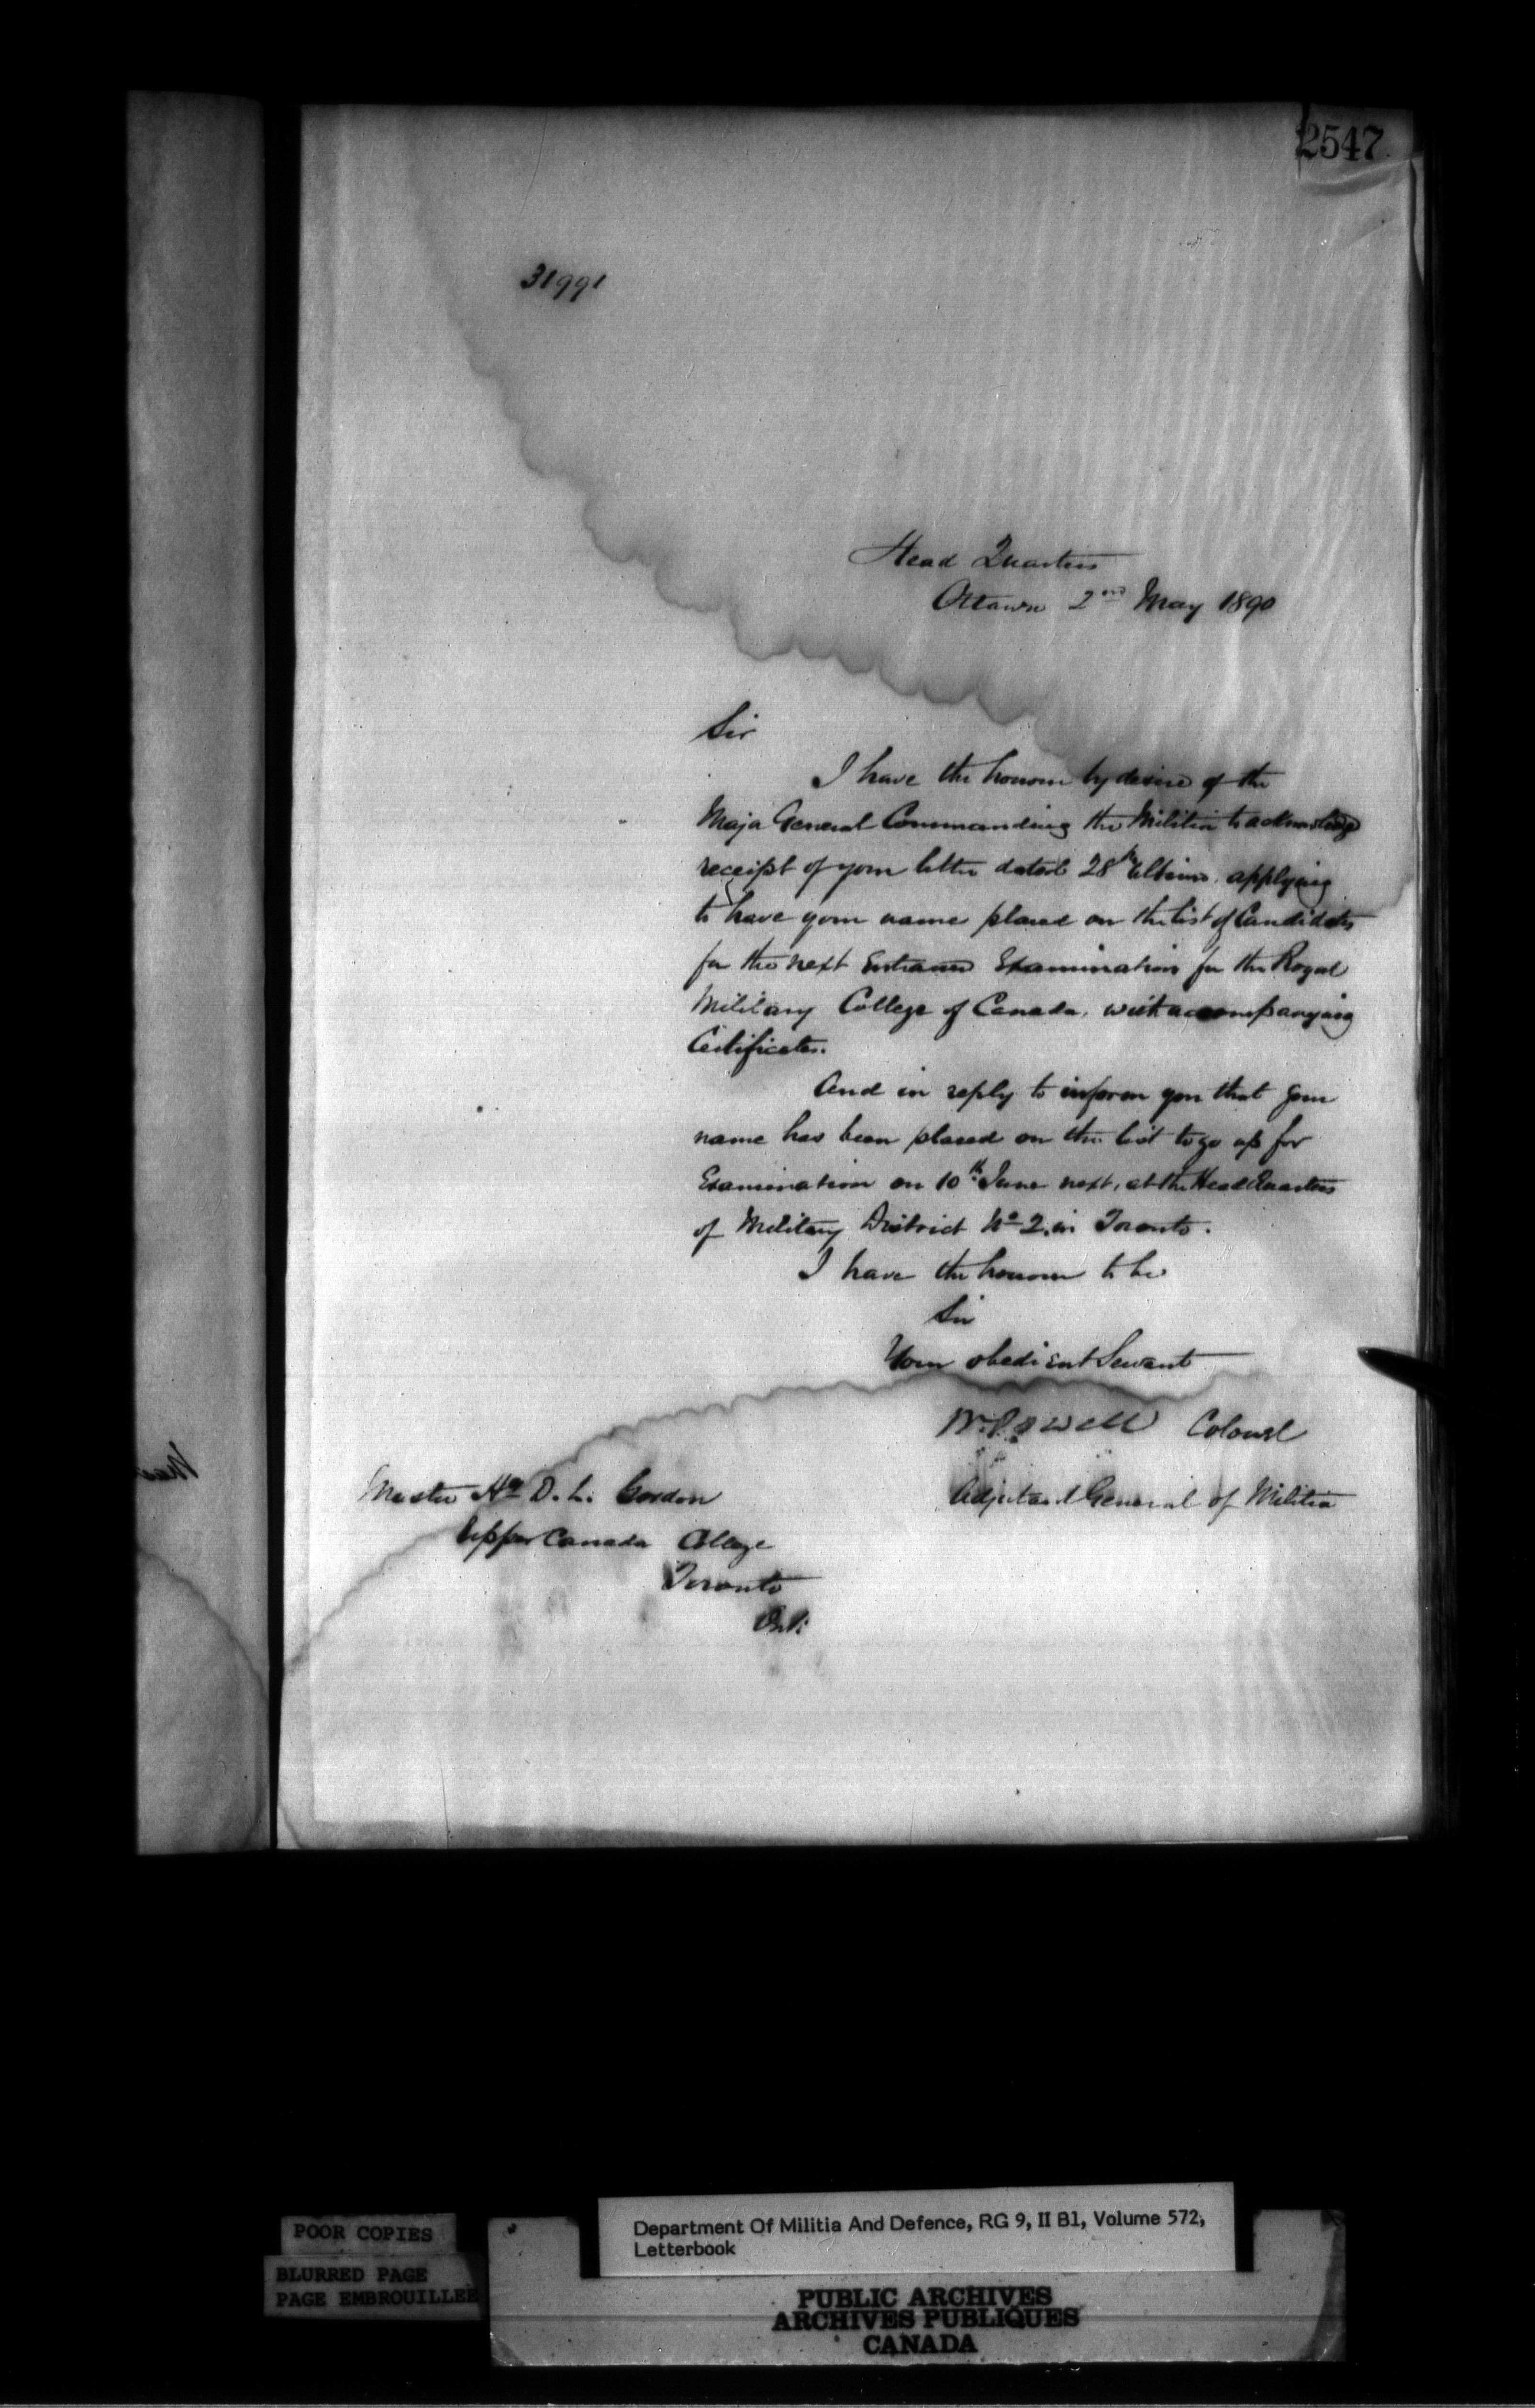 2547
31991
Head Quarters
Ottawa 2nd May 1890
Sir
I have the honour by desire of the
Major General Commanding the Militia to acknowledge
receipt of your letter dated 28th Ultimo, applying
to have your name placed on the list of Candidates
for the next Entrance Examination for the Royal
Military College of Canada, with accompanying
Certificates.
And in reply to inform you that your
name has been placed on the list to go up for
Examination on 10th June next, at the Head Quarters
of Military District No 2, in Toronto.
I have the honour to be
Sir
Your obedient Servant
W. Powell Colonel
Adjutant General of Militia
Master D. L. Gordon
Upper Canada College
Toronto
Ont.
POOR COPIES
BLURRED PAGE
PAGE EMBROUILLEE
Department Of Militia And Defence, RG 9, II B1, Volume 572,
Letterbook
PUBLIC ARCHIVES
ARCHIVES PUBLIQUES
CANADA